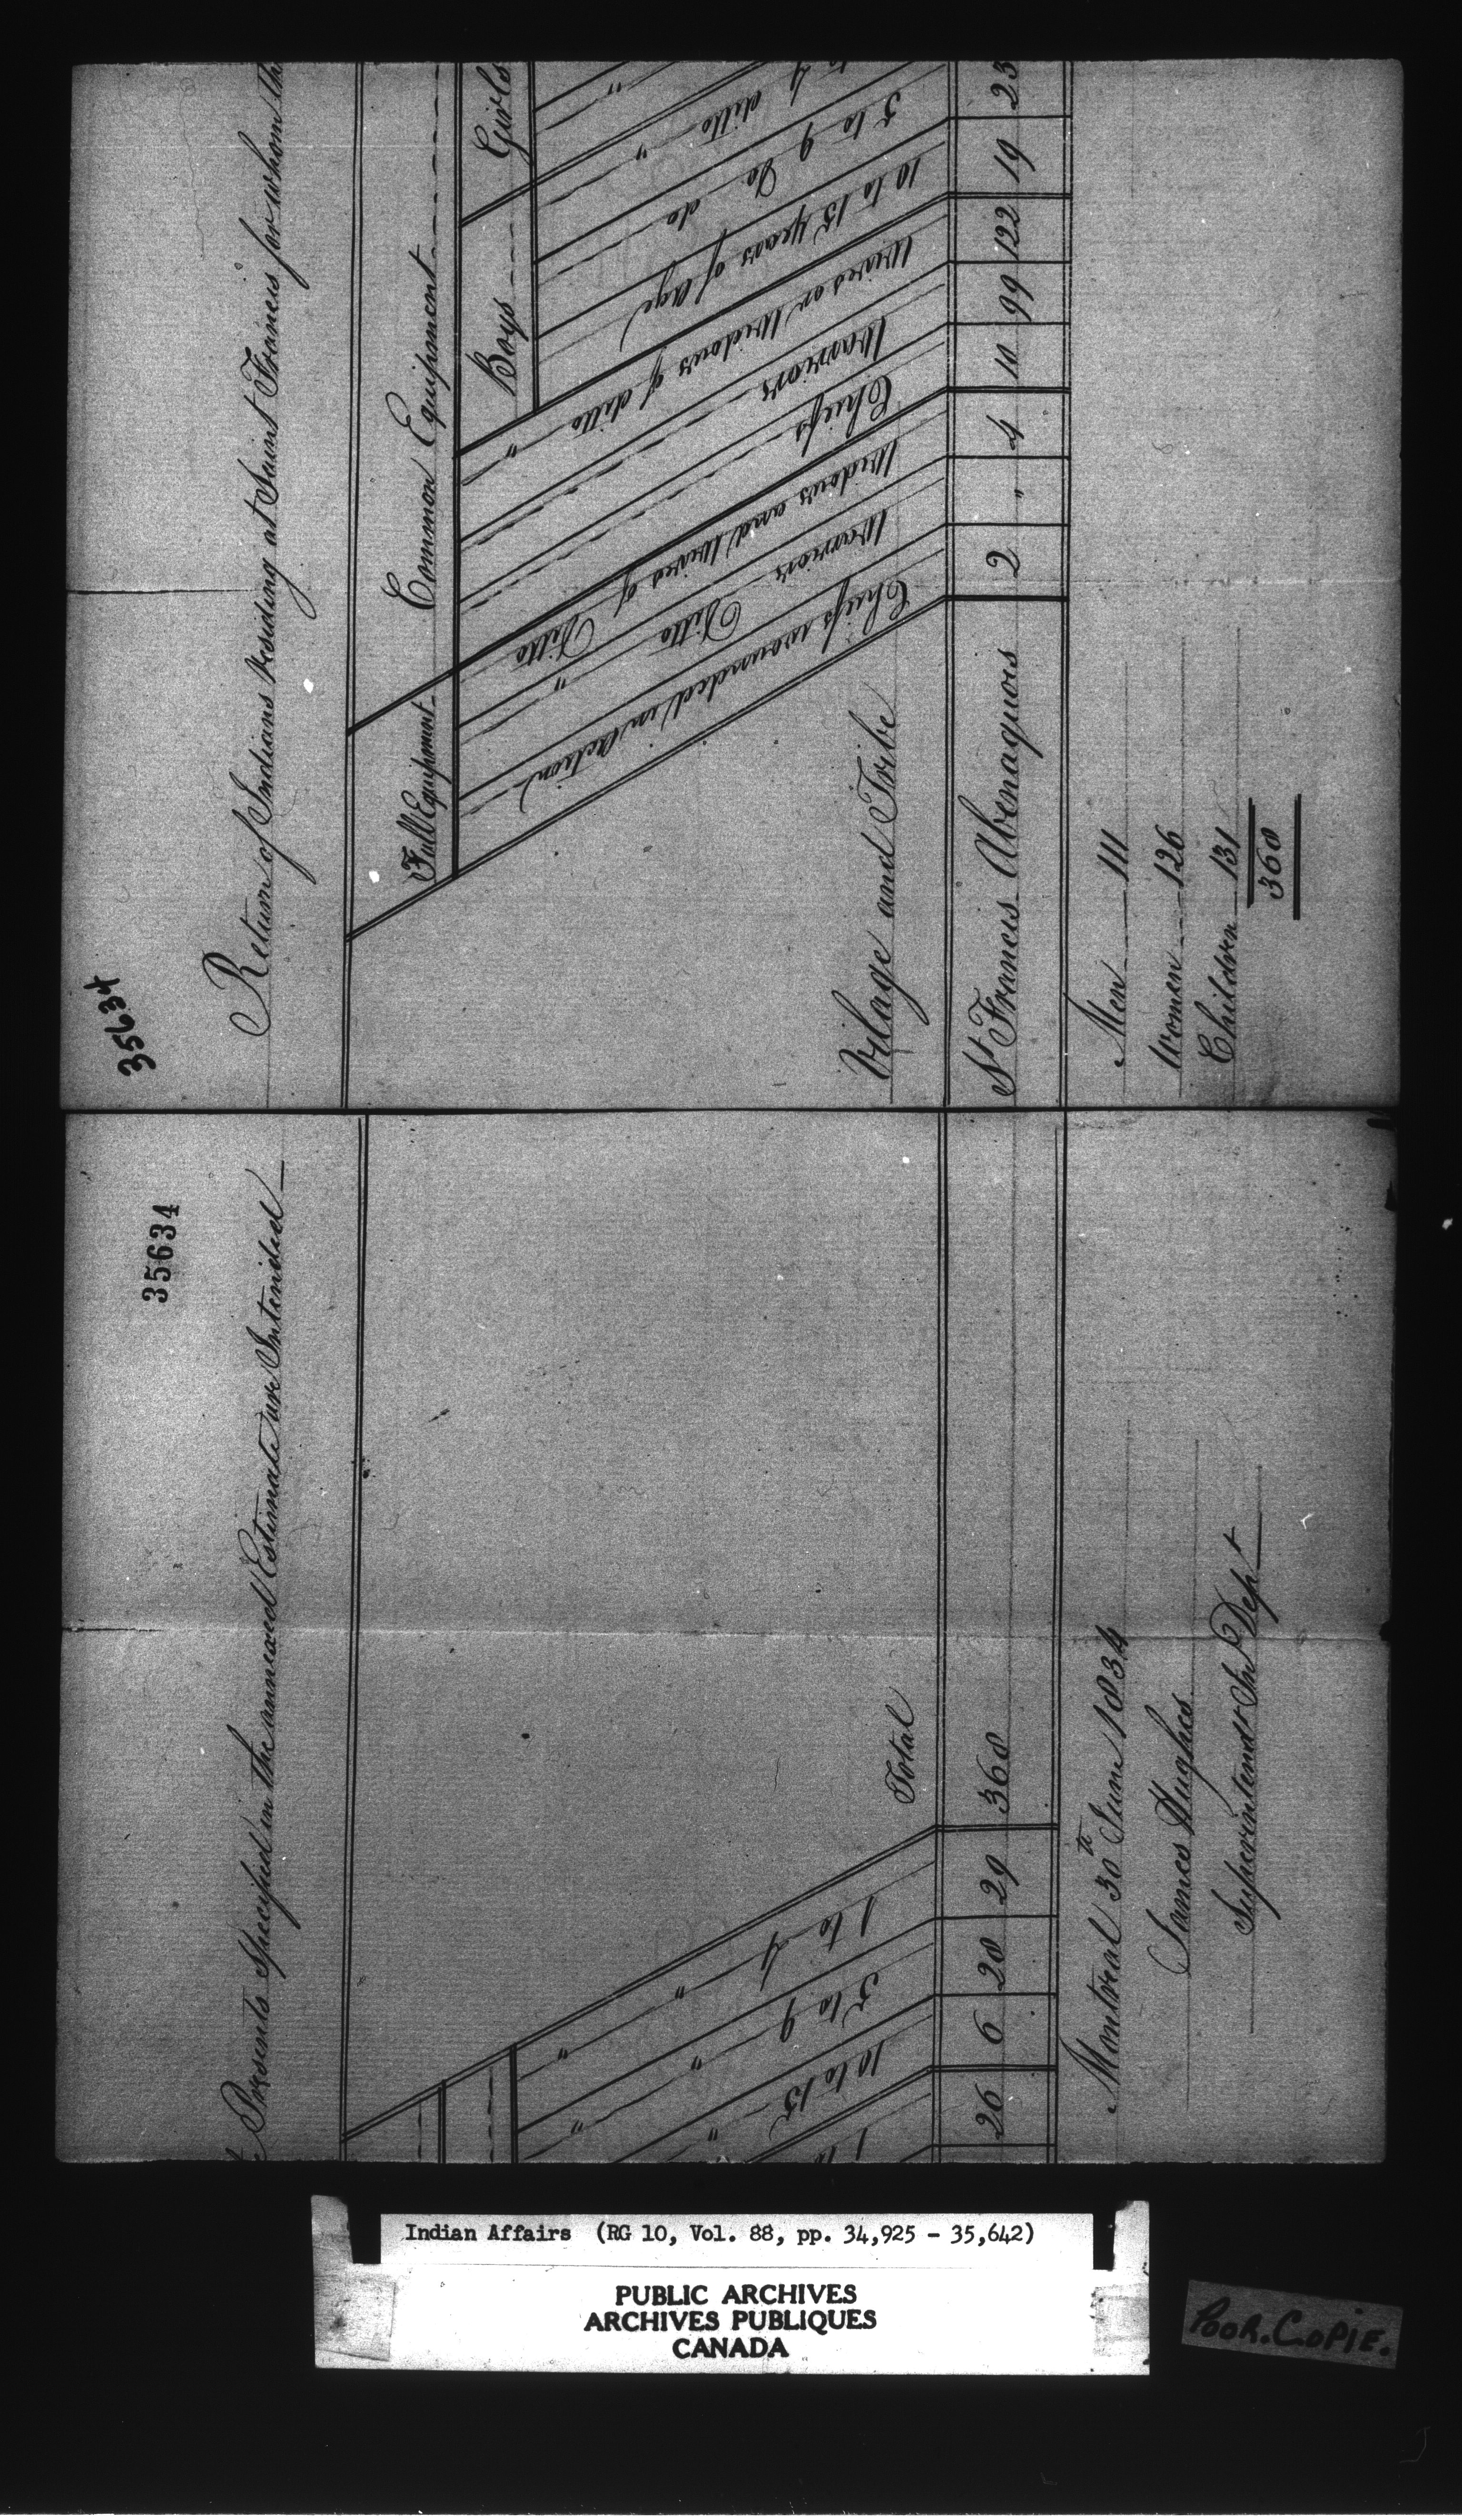 35634
Return of Indians Residing at Saint Francis for whom the
Full Equipment
Common Equipment
Boys
Girls
Village and Tribe
Chiefs wounded in Action
Warriors Ditto
Widows and Wives of Ditto
Chiefs
Warriors
Wives or Widows of ditto "
10 to 15 years of Age
5 to 9 Do do
to 4 ditto "
St Francis Abenaquois 2 " 4 10 99 122 19 23
Men 111
Women 126
Children 131
368
35634
Presents Specified in the annexed Estimate are Intended
10 to 15 " "
5 to 9 " "
1 to 4 " "
Total
26 6 28 29 368
Montreal 30th June 1834
James Hughes
Superintendt In Dept
Indian Affairs (RG 10, Vol. 88, pp. 34,925 - 35,642)
PUBLIC ARCHIVES
ARCHIVES PUBLIQUES
CANADA
POOR.COPIE.